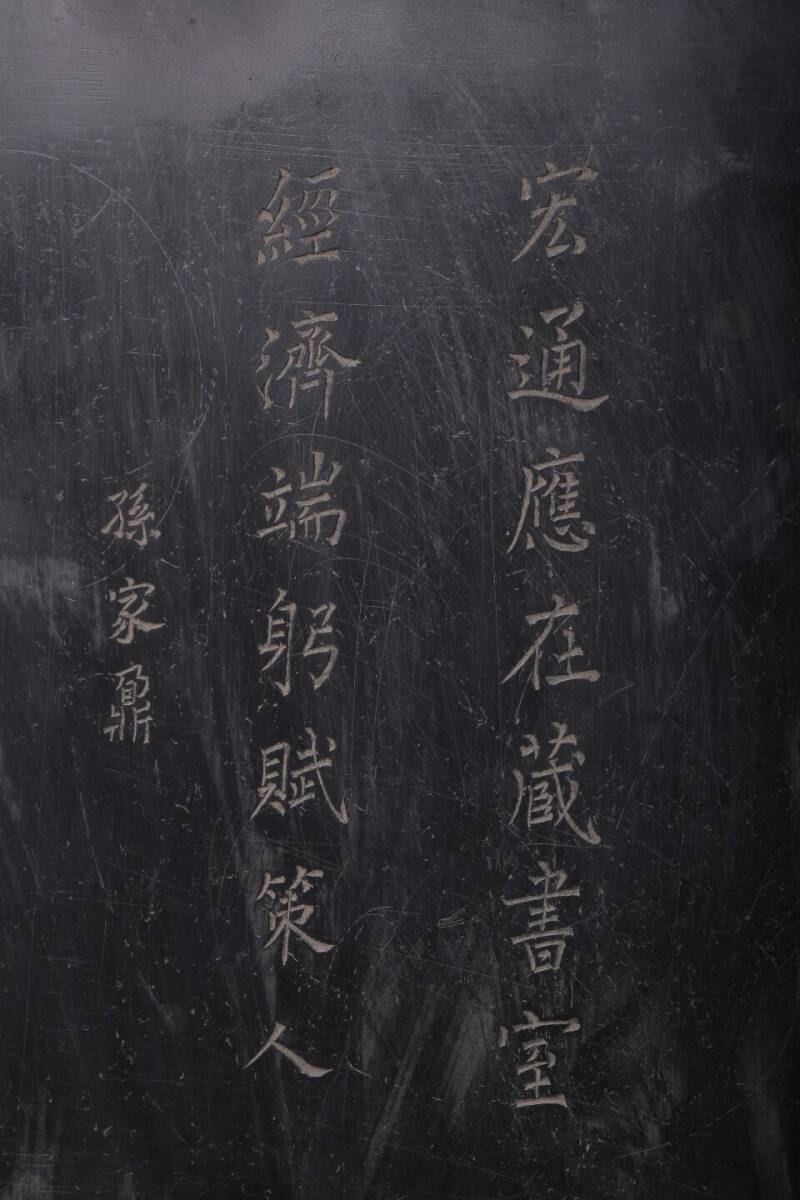 宏通應在藏書室
經濟端躬賦策人
孫家鼐